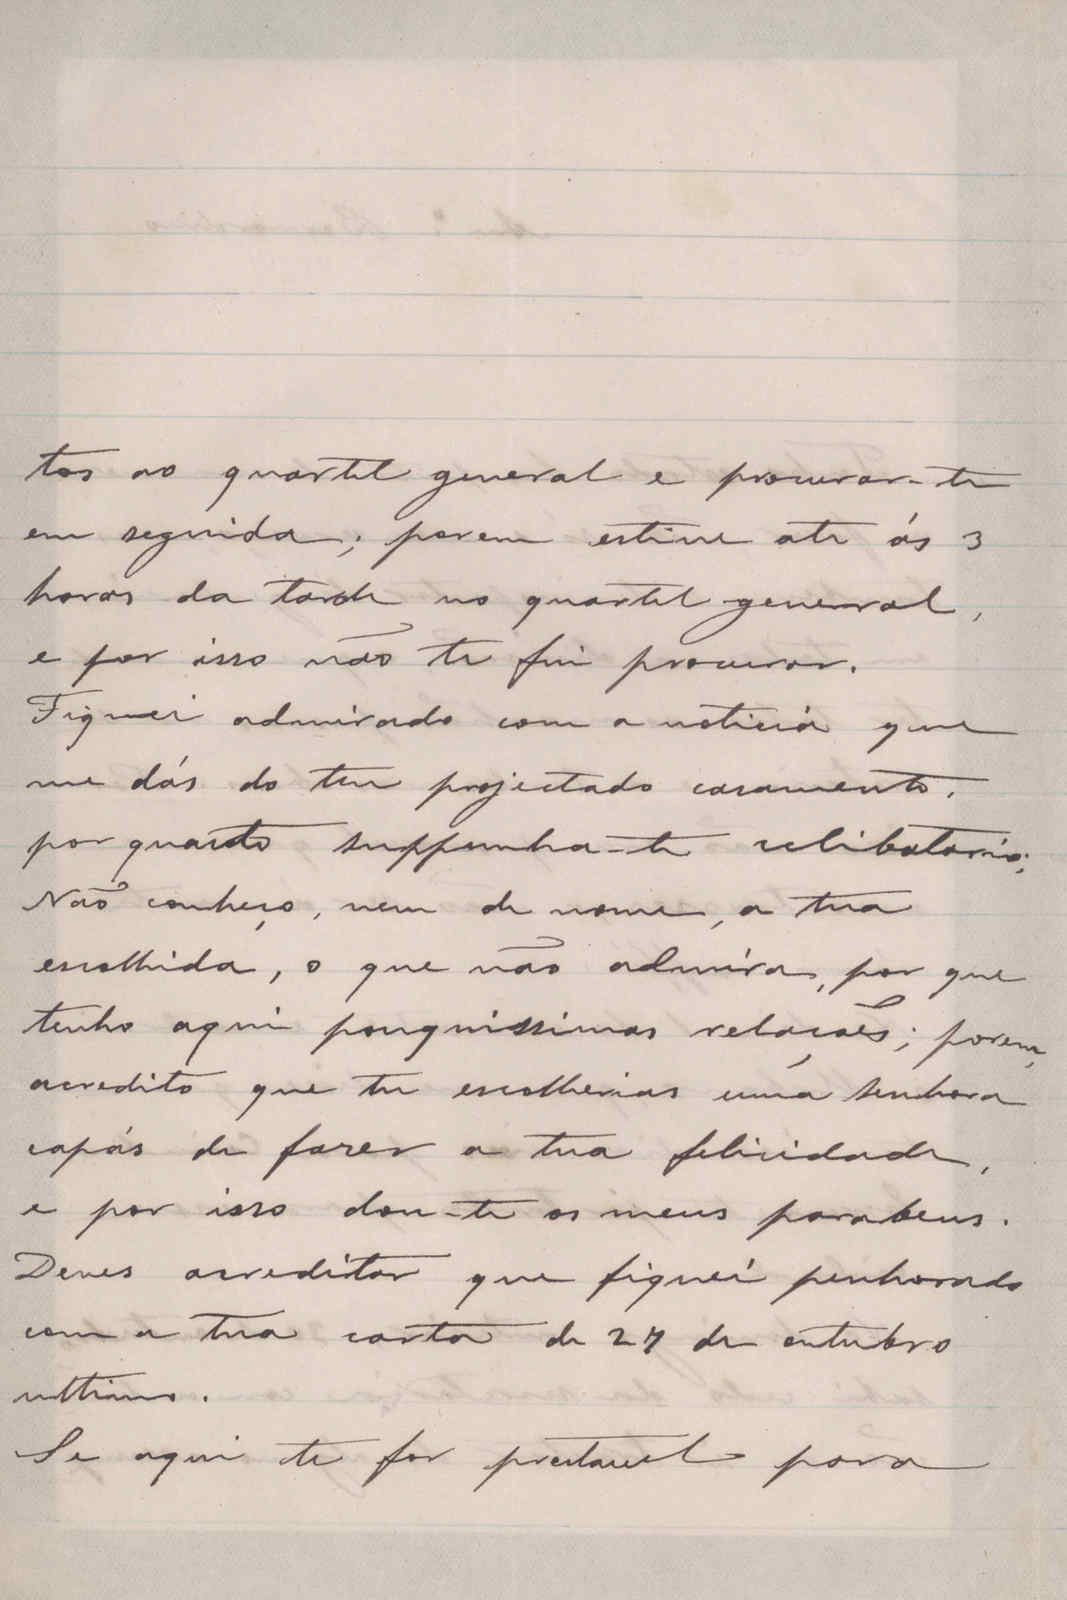 tos ao quartel general e procurar-te
em seguida; porem estive até ás 3
horas da tarde no quartel general,
e por isso não te fui procurar.
Fiquei admirado com a noticia que
me dás do teu projectado casamento,
por quanto suppunha-te celibatario;
Não conheço, nem de nome, a tua
escolhida, o que não admira, por que
tenho aqui pouquissimas relações; porem,
acredito que tu escolherias uma senhora
capás de fazer a tua felicidade,
e por isso dou-te os meus parabens.
Deves acreditar que fiquei penhorado
com a tua carta de 27 de outubro
ultimo.
Se aqui te for prestavel para